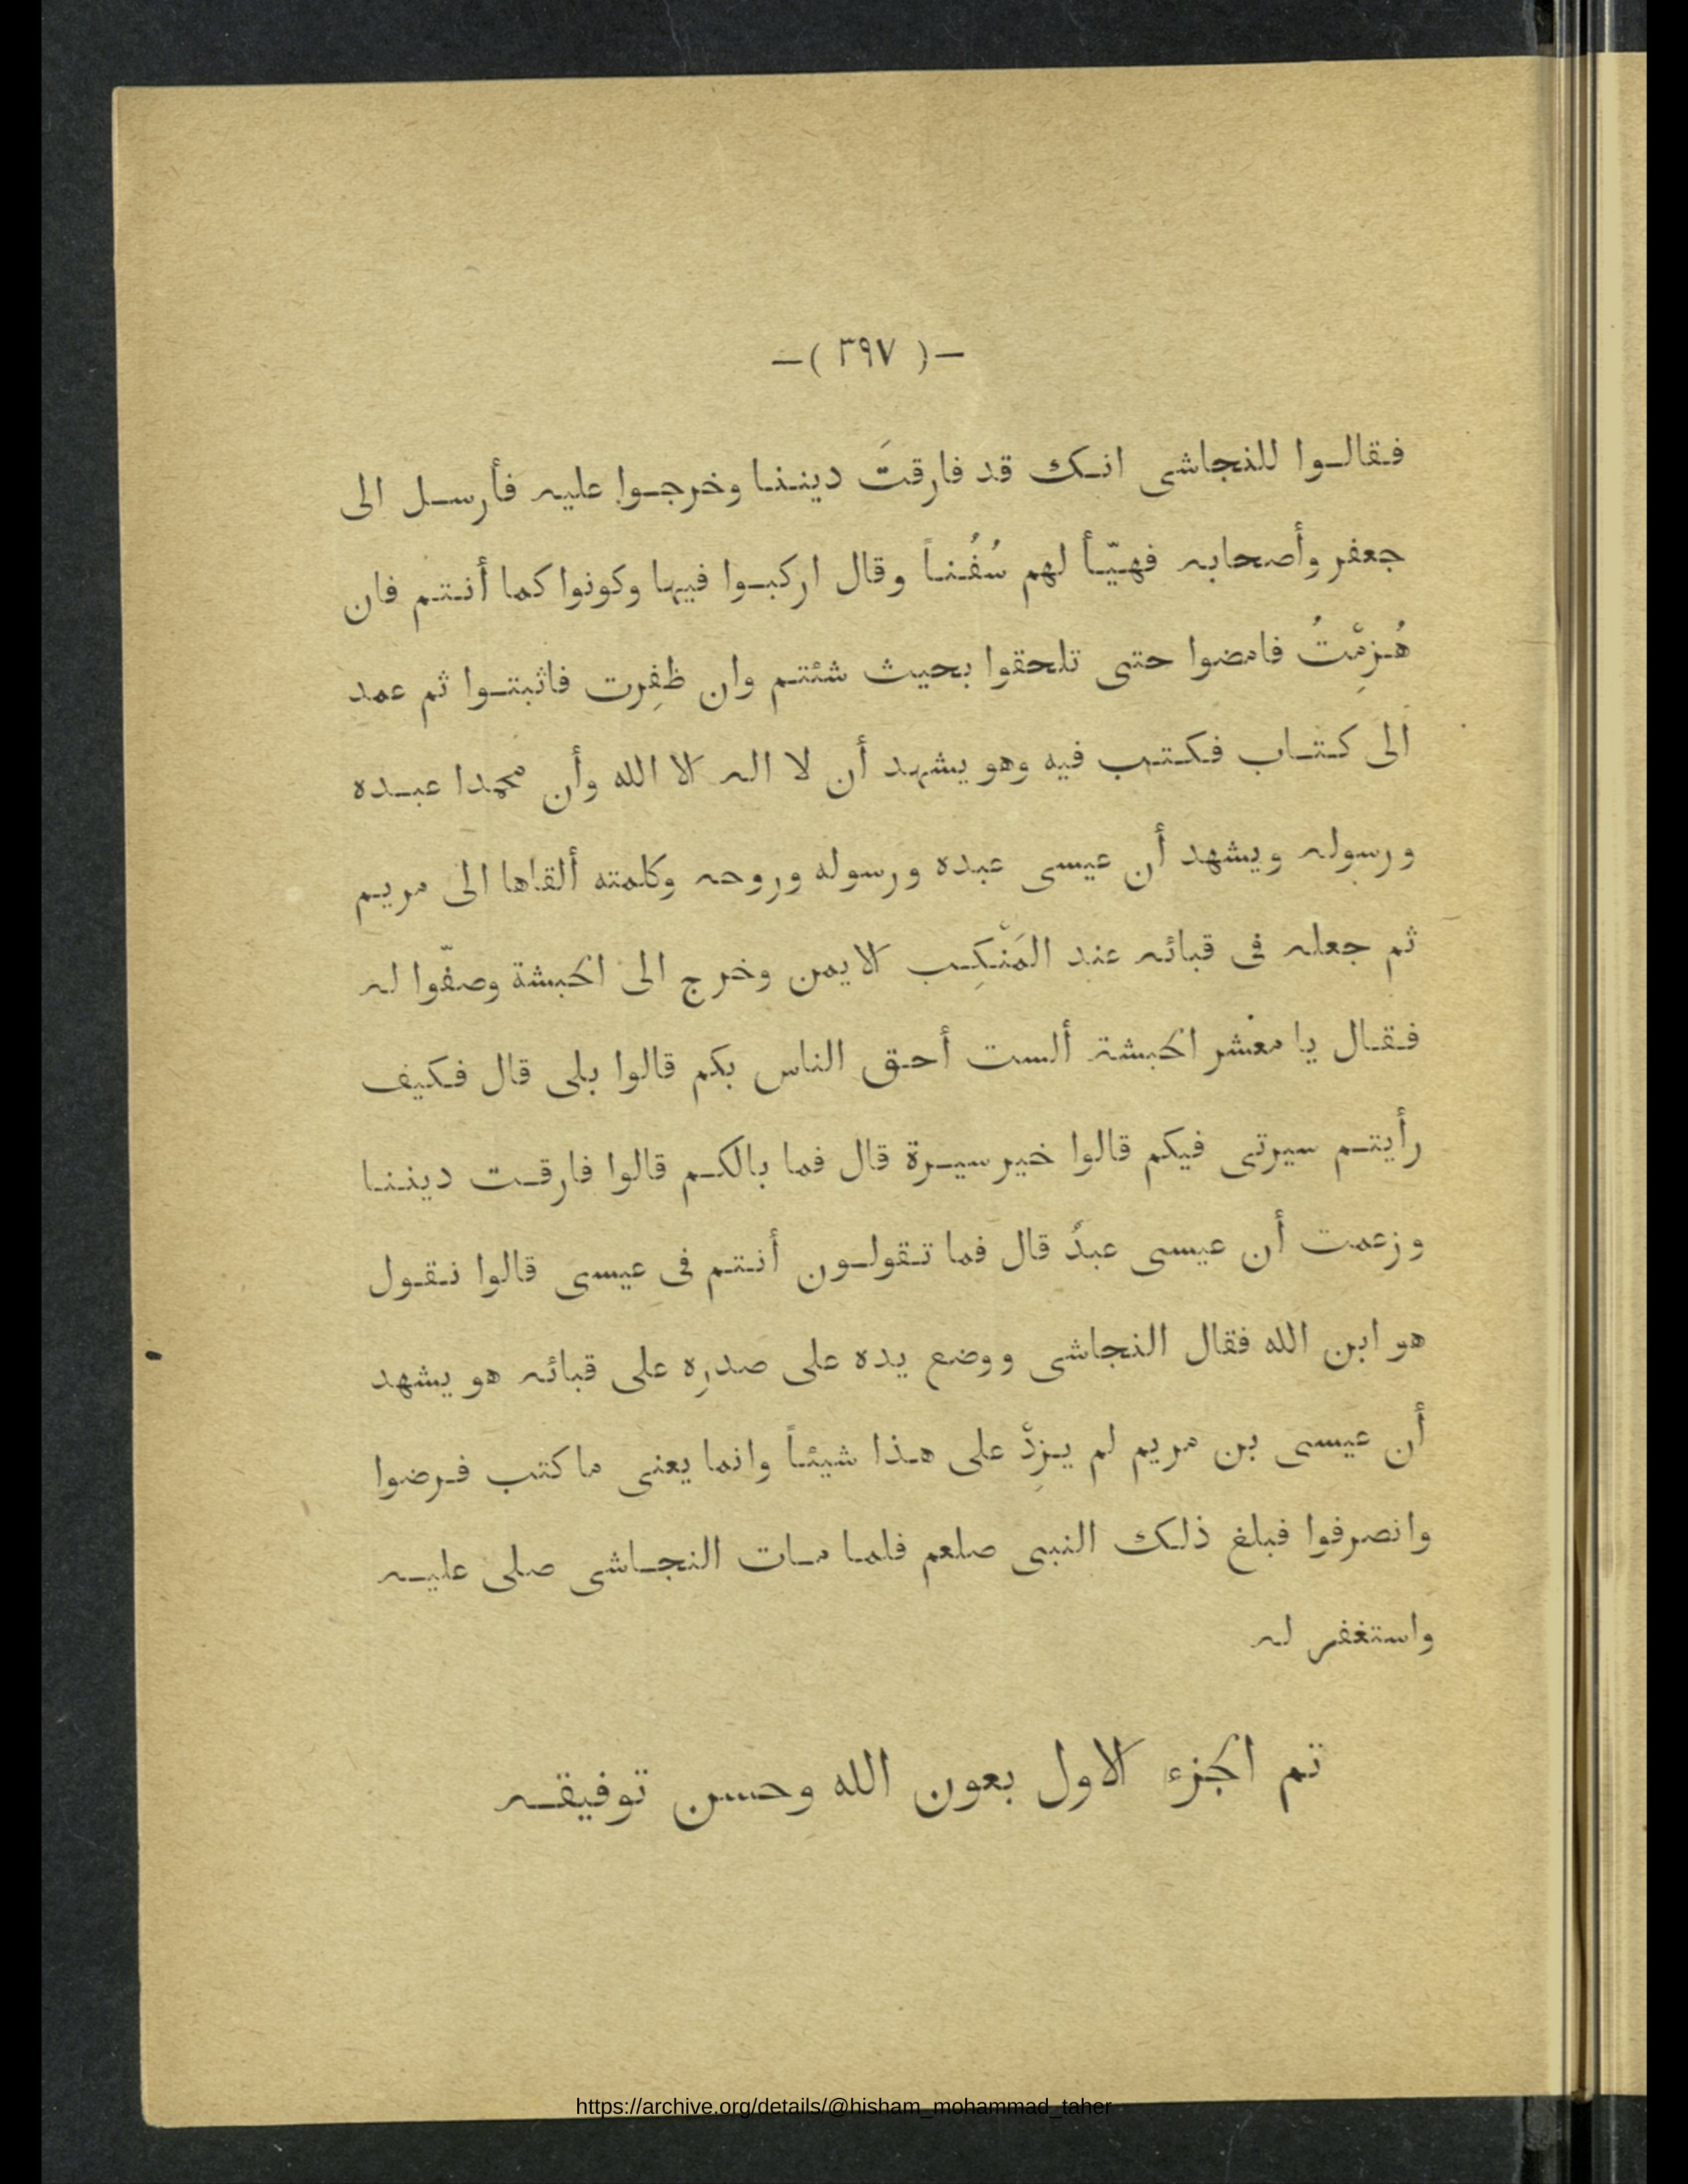 —( ٣٩٧ )—
فقالوا للنجاشى انك قد فارقتَ ديننا وخرجوا عليه فأرسل الى
جعفر وأصحابه فهيّأ لهم سُفُناً وقال اركبوا فيها وكونوا كما أنتم فان
هُزِمْتُ فامضوا حتى تلحقوا بحيث شئتم وان ظفِرت فاثبتوا ثم عمد
الى كتاب فكتب فيه وهو يشهد أن لا اله الا الله وأن محمدا عبده
ورسوله ويشهد أن عيسى عبده ورسوله وروحه وكلمته ألقاها الى مريم
ثم جعله فى قبائه عند المَنْكِب الايمن وخرج الى الحبشة وصفّوا له
فقال يا معشر الحبشة ألست أحق الناس بكم قالوا بلى قال فكيف
رأيتم سيرتى فيكم قالوا خير سيرة قال فما بالكم قالوا فارقت ديننا
وزعمت أن عيسى عبدٌ قال فما تقولون أنتم فى عيسى قالوا نقول
هو ابن الله فقال النجاشى ووضع يده على صدرِه على قبائه هو يشهد
أن عيسى بن مريم لم يزِدْ على هذا شيئاً وانما يعنى ما كتب فرضوا
وانصرفوا فبلغ ذلك النبى صلعم فلما مات النجاشى صلى عليه
واستغفر له
تم الجزء الاول بعون الله وحسن توفيقه
https://archive.org/details/@hisham_mohammad_taher